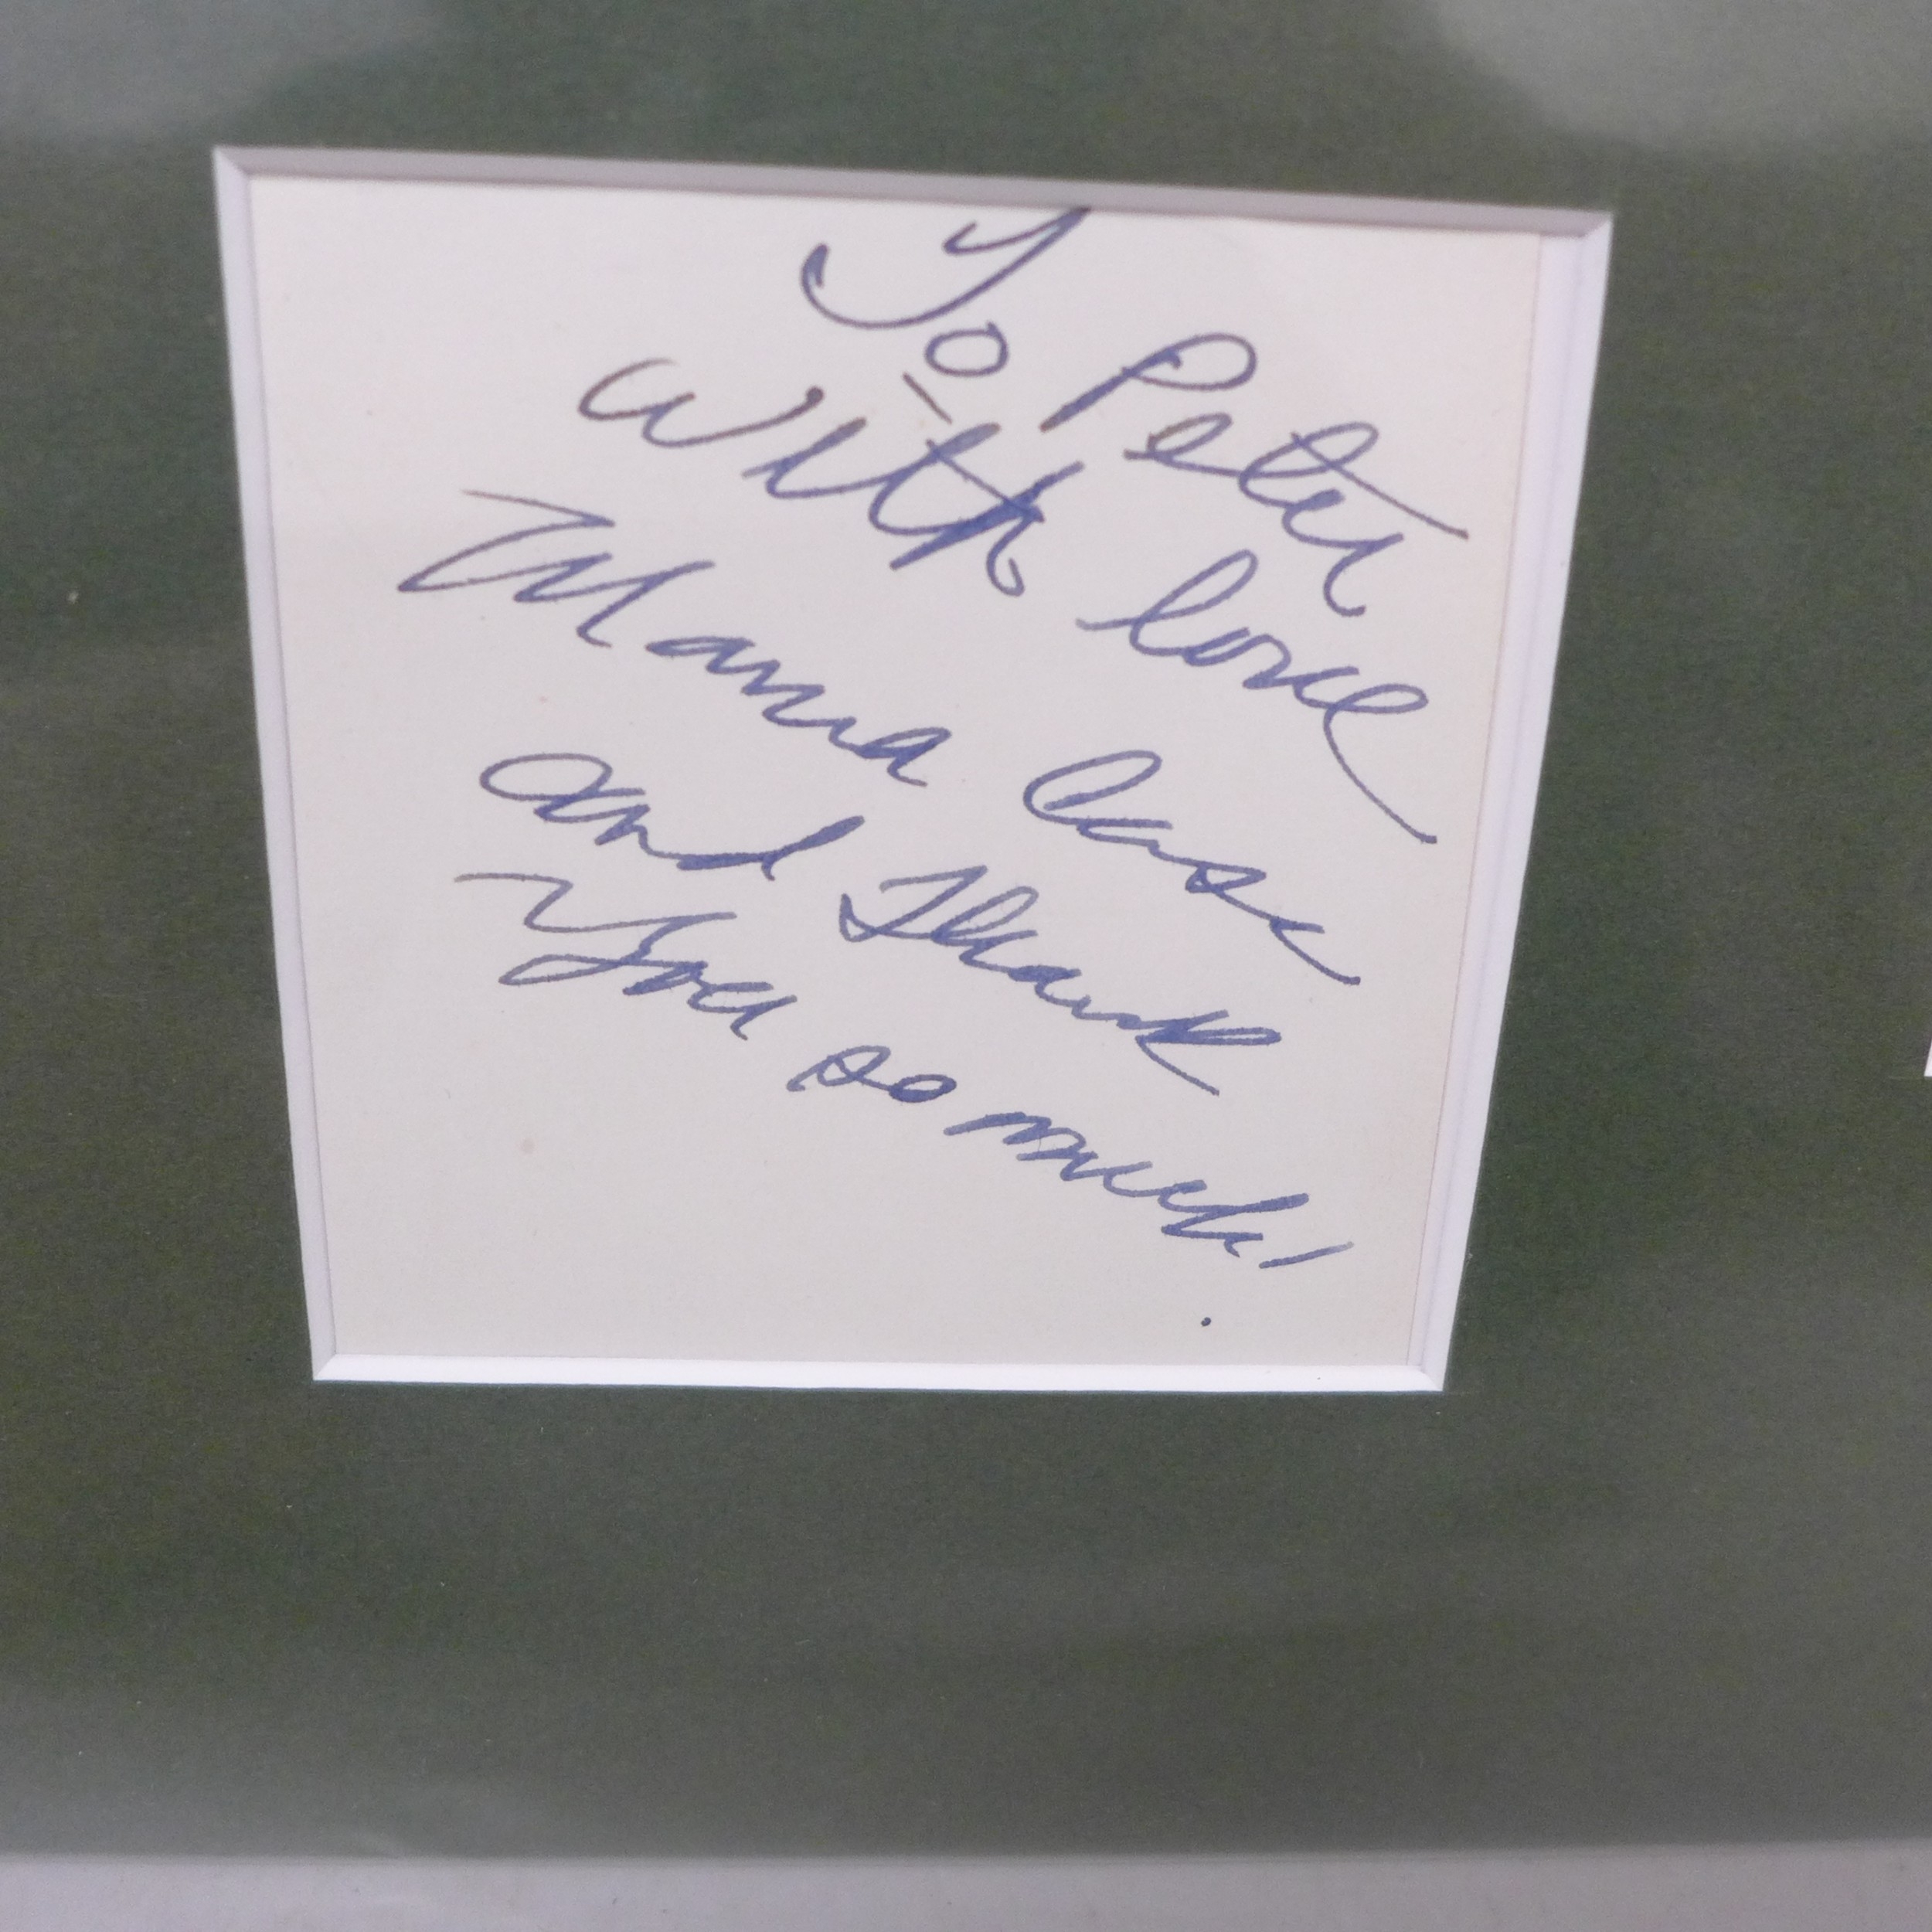 To Peter
With love
Mama Cass
and Thank
You so much!